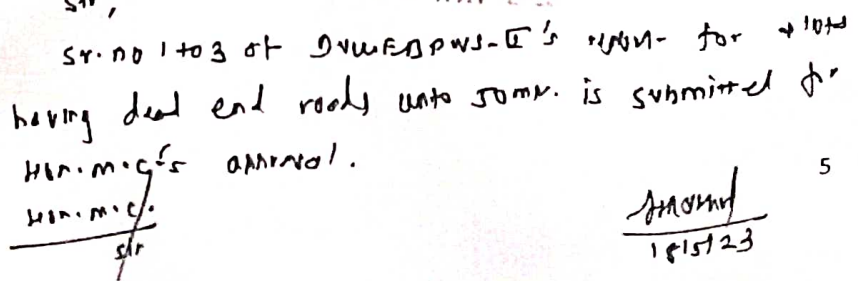 Sir,
Sr. no 1 to 3 of Dy.CE(BP)WS-II's report for plots
having dead end roads upto 50 mtr. is submitted for
Hon. M.C.'s approval.
Hon. M.C.
Sir
5
18/5/23